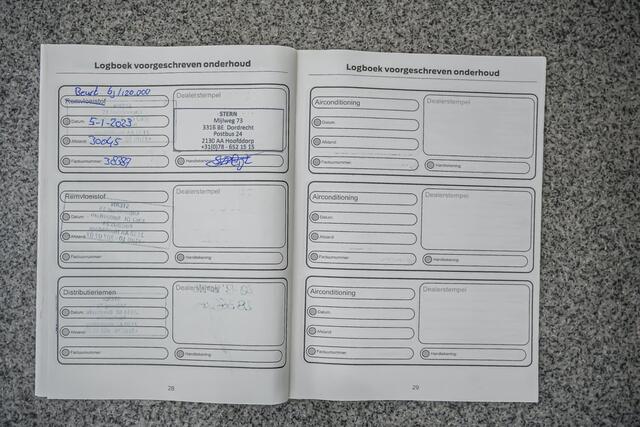 Logboek voorgeschreven onderhoud
Beurt 6j/120.000
Remvloeistof
Datum: 5-1-2023
Afstand: 30045
Factuurnummer: 30387
Dealerstempel
STERN
Mijlweg 73
3316 BE Dordrecht
Postbus 24
2130 AA Hoofddorp
+31(0)78 - 652 15 15
Handtekening:
Remvloeistof
Datum:
Afstand:
Factuurnummer:
Dealerstempel
Handtekening:
Distributieriemen
Datum:
Afstand:
Factuurnummer:
Dealerstempel
Handtekening:
28
Logboek voorgeschreven onderhoud
Airconditioning
Datum:
Afstand:
Factuurnummer:
Dealerstempel
Handtekening:
Airconditioning
Datum:
Afstand:
Factuurnummer:
Dealerstempel
Handtekening:
Airconditioning
Datum:
Afstand:
Factuurnummer:
Dealerstempel
Handtekening:
29